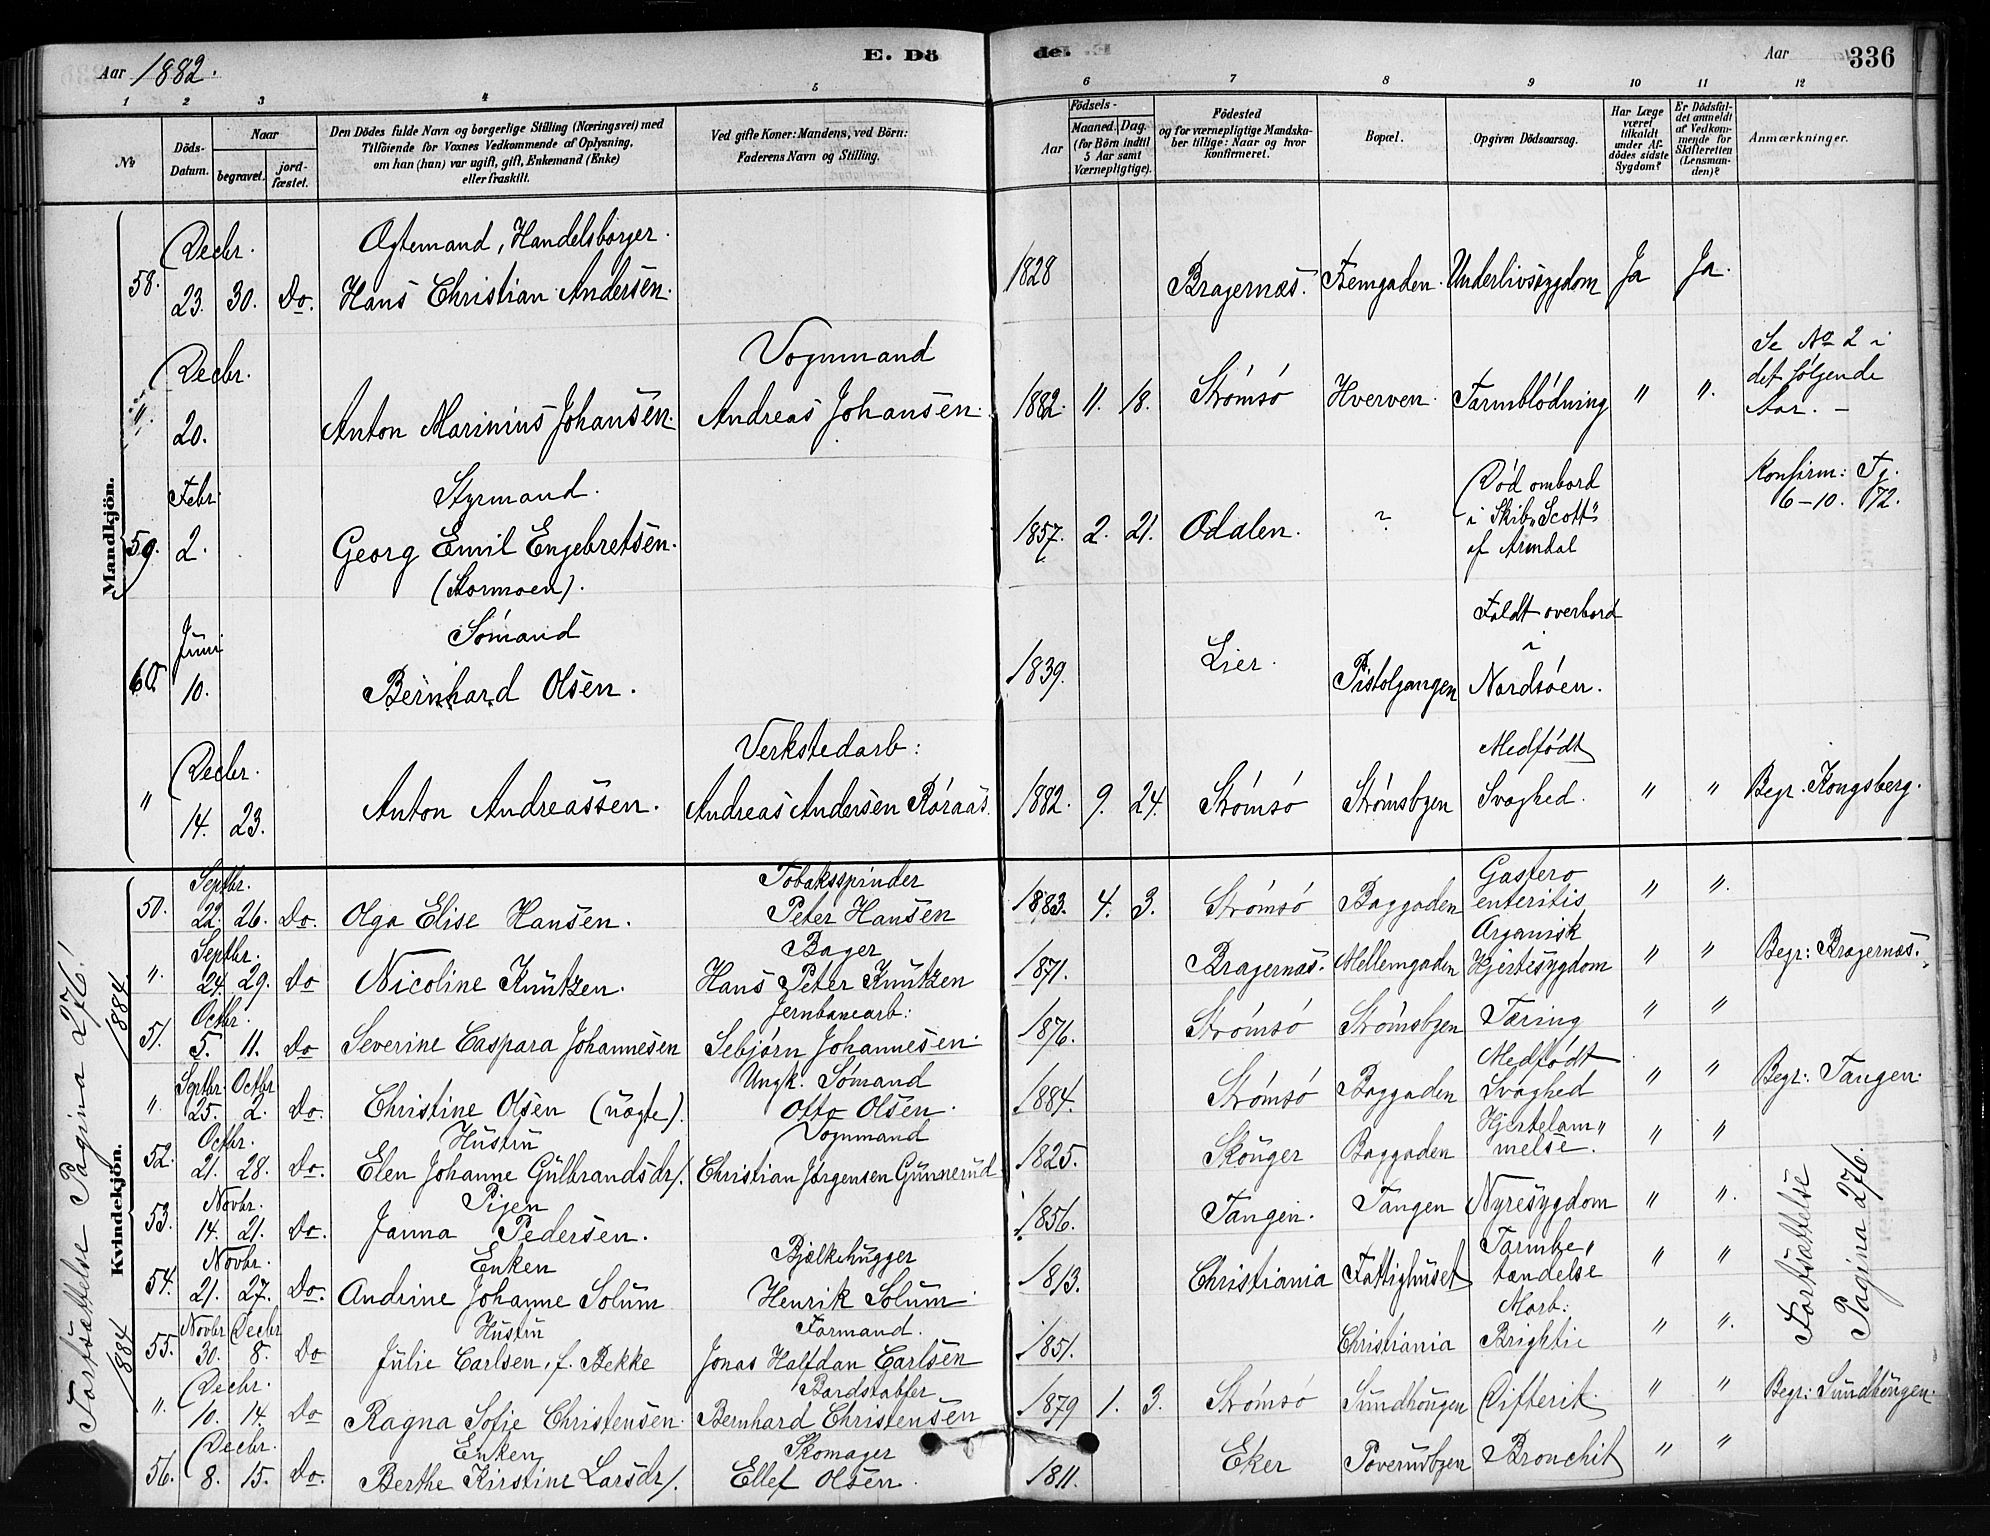 Aar 1882.
E. Döde.
Aar
336
1 2 3 4 5 6 7 8 9 10 11 12
No
Döds-Datum.
Naar
begravet.
jord-fæstet.
Den Dödes fulde Navn og borgerlige Stilling (Næringsvei) med
Tilföiende for Voxnes Vedkommende af Oplysning,
om han (hun) var ugift, gift, Enkemand (Enke)
eller fraskilt.
Ved gifte Koner: Mandens, ved Börn:
Faderens Navn og Stilling.
Födsels-
Aar
Maaned. Dag.
(for Börn indtil
5 Aar samt
Værnepligtige).
Födested
og for værnepligtige Mandska-
ber tillige: Naar og hvor
konfirmeret.
Bopæl.
Opgiven Dödsaarsag.
Har Læge
været
tilkaldt
under Af-
dödes sidste
Sygdom?
Er Dödsfal-
det anmeldt
af Vedkom-
mende for
Skifteretten
(Lensman-
den)?
Anmærkninger.
Mandkjön.
58. Decbr. 23. 30. Do. Ægtemand, Handelsborger. Hans Christian Andersen. 1828 Bragernæs. Femgaden. Underlivssygdom Ja Ja.
" Decbr. 20. Anton Marinius Johansen. Vognmand Andreas Johansen. 1882. 11. 18. Strømsø Hverven. Tarmblødning " " Se No 2 i det følgende Aar. –
59. Febr. 2. Styrmand. Georg Emil Engebretsen. (Stormoen). 1857. 2. 21. Odalen. ? Død ombord i Skib "Scott" af Arendal Konfirm: Tg. 6-10. 72.
60. Juni 10. Sømand Bernhard Olsen. 1839. Lier. Pistolgangen Faldt overbord i Nordsøen.
" Decbr. 14. 23. Anton Andreassen. Verkstedarb: Andreas Andersen Røraas. 1882. 9. 24. Strømsø Strømsbyen Medfødt Svaghed. " " Begr. Kongsberg.
Kvindekjön.
Fortsættelse Pagina 276!
1884.
1884
50. Septbr. 22. 26. Do. Olga Elise Hansen. Tobaksspinder Peter Hansen 1883. 4. 3. Strømsø Baggaden Gastero enteritis " "
" Septbr. 24. 29. Do Nicoline Knutzen. Bager Hans Peter Knutzen 1871. Bragernæs. Mellemgaden Organisk Hjertesygdom " " Begr: Bragernæs.
51. Octbr. 5. 11. Do Severine Caspara Johannesen Jernbanearb: Sebjørn Johannesen. 1876. Strømsø Strømsbyen Tæring " "
" Septbr. 25. Octbr 2. Do Christine Olsen (uægte). Ungk. Sømand Otto Olsen. 1884. Strømsø Baggaden Medfødt Svaghed " " Begr: Tangen.
52. Octbr. 21. 28. Do. Hustru Elen Johanne Gulbrandsdr/. Vognmand Christian Jørgensen Gunnerud 1825. Skouger Baggaden Hjertelam" melse. " "
53. Novbr. 14. 21. Do. Pigen Janna Pedersen. 1856. Tangen. Tangen Nyresygdom " "
54. Novbr. 21. 27. Do. Enken Andrine Johanne Solum Bjelkehugger Henrik Solum. 1813. Christiania Fattighuset Tarmbe" tændelse " "
55. Novbr 30. Decbr 8. Do Hustru Julie Carlsen, f. Bekke Formand. Jonas Halfdan Carlsen 1851. Christiania Morb: Brightii " "
" Decbr. 10. 14. Do Ragna Sofie Christensen. Bernhard Christensen 1879 1. 3. Strømsø Sundhougen Difterit. " " Begr: Sundhougen.
56. Decbr. 8. 15. Do. Enken Berthe Kirstine Larsdr/. Skomager Ellef Olsen. 1811. Eker Poverudbyen Bronchit " "
Fortsættelse
Pagina 276.